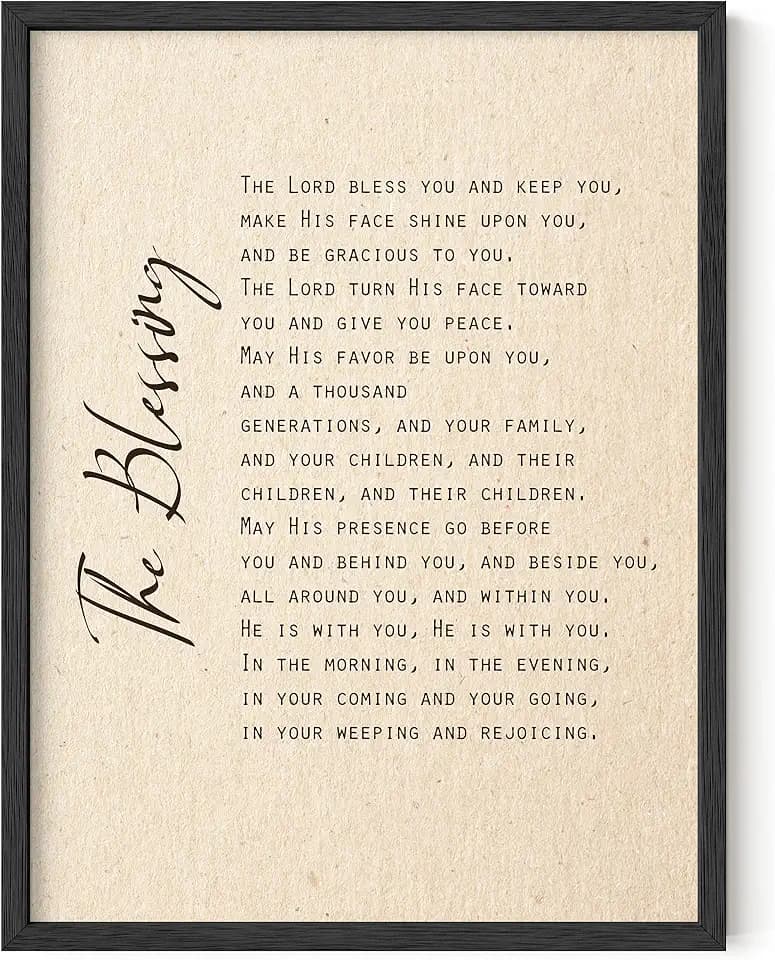 The Blessing
The Lord bless you and keep you,
make His face shine upon you,
and be gracious to you.
The Lord turn His face toward
you and give you peace.
May His favor be upon you,
and a thousand
generations, and your family,
and your children, and their
children, and their children.
May His presence go before
you and behind you, and beside you,
all around you, and within you.
He is with you, He is with you.
In the morning, in the evening,
in your coming and your going,
in your weeping and rejoicing.